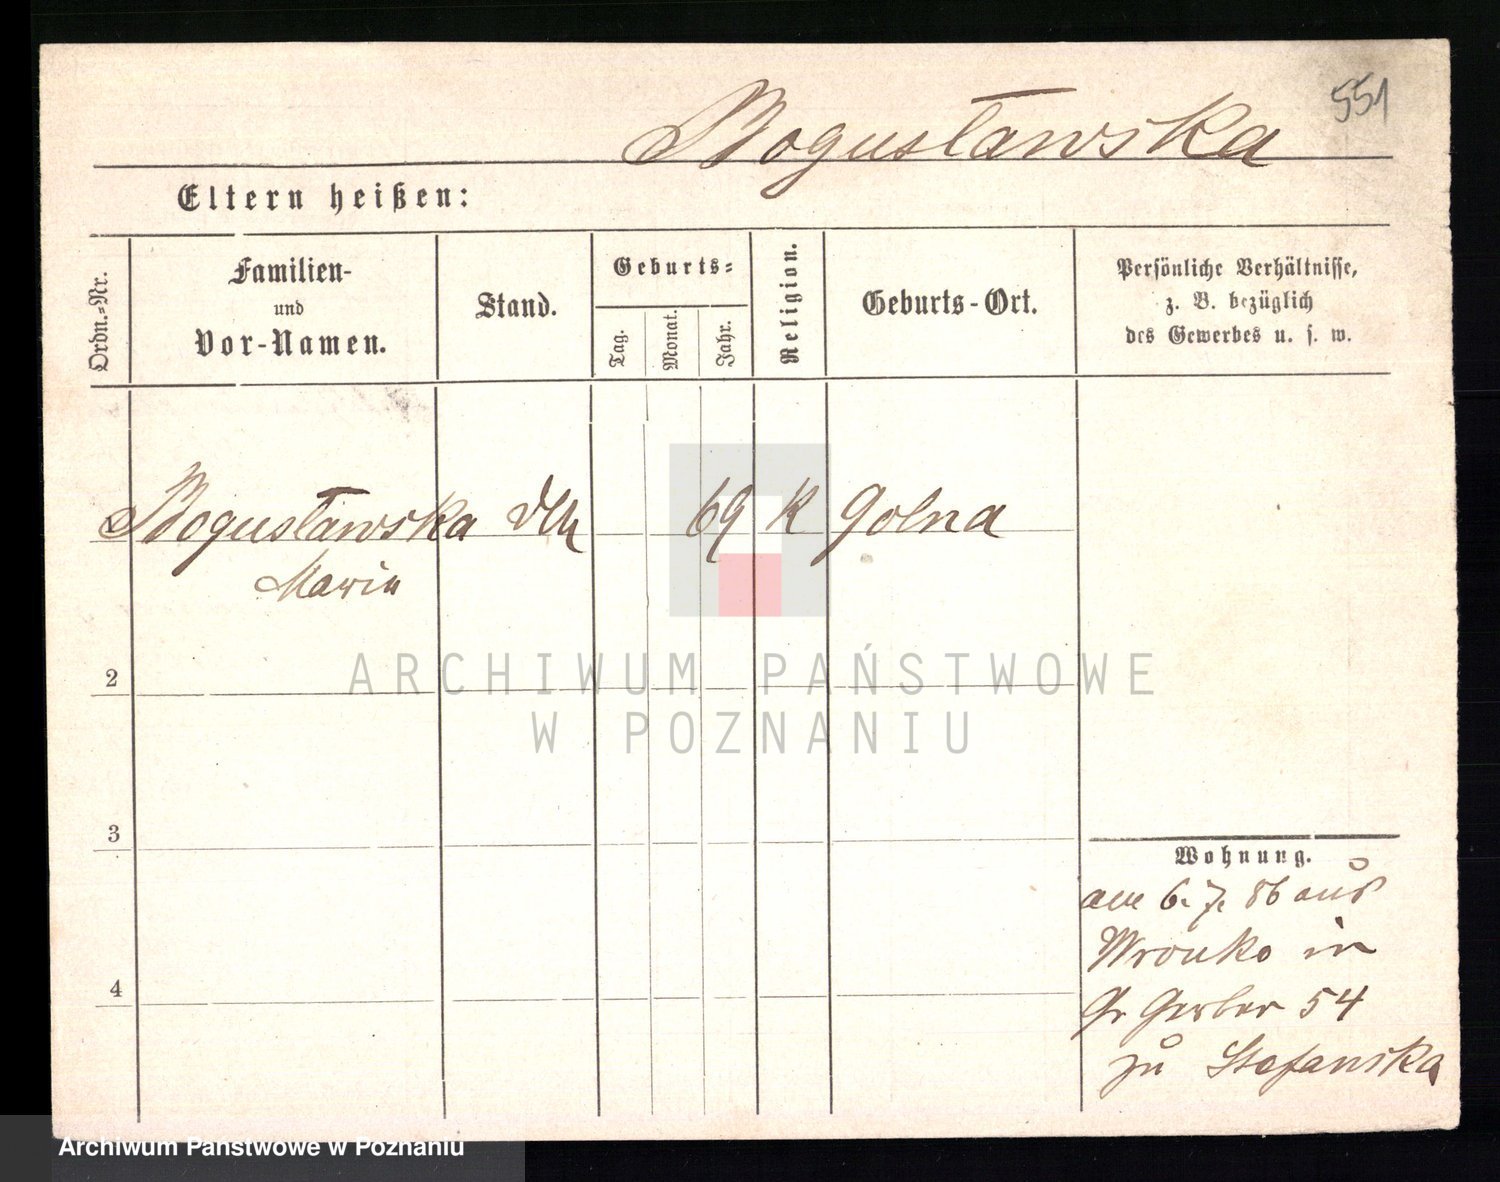 551
Bogusławska
Eltern heißen:
Ordn.-Nr.
Familien-
und
Vor-Namen.
Stand.
Geburts-
Tag.
Monat.
Jahr.
Religion.
Geburts-Ort.
Persönliche Verhältnisse,
z. B. bezüglich
des Gewerbes u. s. w.
Bogusławska 69 K Golna
Maria
2
3
4
Wohnung.
am 6. 7. 86 aus
Wronke in
Gr Gerber 54
zu Stefanska
ARCHIWUM PAŃSTWOWE
W POZNANIU
Archiwum Państwowe w Poznaniu